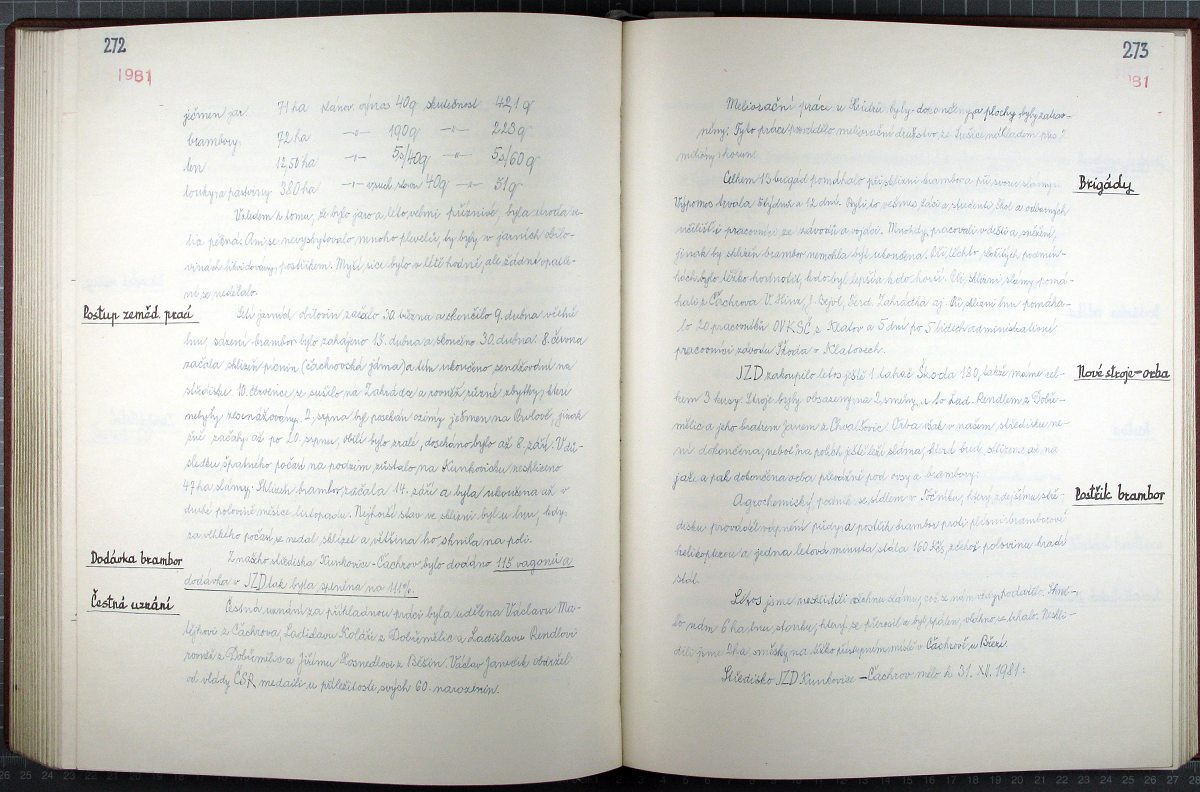 272
1981
ječmen jar. 71 ha plánov. výnos 40q skutečnost 42,1 q
brambory 72 ha -"- 190q -"- 223q
len 12,50 ha -"- 5s/40q -"- 5s/60q
louky a pastviny 380 ha -"- v such. stavu 40q -"- 51q
Vzhledem k tomu, že bylo jaro a léto velmi příznivé, byla úroda ve-
lice pěkná. Ani se nevyskytovalo mnoho plevelů, ty byly v jarních obilo-
vinách likvidovány postřikem. Myší sice bylo v létě hodně, ale žádné opatře-
ní se nedělalo.
Postup zeměd. prací
Setí jarních obilovin začalo 30. března a skončilo 9. dubna včetně
lnu, sázení brambor bylo zahájeno 13. dubna a skončeno 30. dubna. 8. června
začala sklizeň pícnin (čachrovská jáma) a tím ukončeno senážování na
středisku. 10. července se sušilo na Zahrádce a rovněž různé zbytky, které
nebyly zesenážovány. 2. srpna byl posekán ozimý ječmen na , jinak
žně začaly až po 20. srpnu, obilí bylo zralé, dosekáno bylo až 8. září. V dů-
sledku špatného počasí na podzim zůstalo na Kunkovicku nesklizeno
47 ha slámy. Sklizeň brambor začala 14. září a byla ukončena až v
druhé polovině měsíce listopadu. Nejhorší stav ve sklizni byl u lnu, kdy
za vlhkého počasí se nedal sklízet a většina ho shnila na poli.
Dodávka brambor
Z našeho střediska Kunkovice - Čachrov bylo dodáno 115 vagonů a
dodávka v JZD tak byla splněna na 111%.
Čestná uznání
Čestná uznání za příkladnou práci byla udělena Václavu Ma-
tějkovi z Čachrova, Ladislavu Kolářı z Dobřemělic a Ladislavu Rendlovi
rovněž z Dobřemělic a Jiřímu Hosnedlovi z Běšin. Václav Janeček obdržel
od vlády ČSR medaili u příležitosti svých 60. narozenin.
273
1981
Meliorační práce u byly dokončeny a plochy byly zatrav-
něny. Tyto práce provádělo meliorační družstvo ze Sušice nákladem přes 2
milióny korun.
Brigády
Celkem 13 brigád pomáhalo při sklizni brambor a při svozu slámy.
Výpomoc trvala 5 týdnů a 12 dní. Byli to vesměs žáci a studenti škol a odborných
učilišť i pracovníci ze závodů a vojáci. Mnohdy pracovali v dešti a sněžení,
jinak by sklizeň brambor nemohla být ukončena. Při těchto složitých podmín-
kách bylo těžko hodnotit, kdo byl lepší a kdo horší. Při sklizni slámy pomá-
hali z Čachrova V. Hina, J. Bejvl, Ferd. Zahrádka aj. Při sklizni lnu pomáha-
lo 20 pracovníků OV KSČ z Klatov a 5 dní po 5 lidech administrativní
pracovníci závodu Škoda v Klatovech.
Nové stroje - orba
JZD zakoupilo letos ještě 1 tahač Škoda 180, takže máme cel-
kem 3 kusy. Stroje byly obsazeny na 2 směny, a to Lad. Rendlem z Dobře-
mělic a jeho bratrem Janem z Chvalšovic. Orba však v našem středisku ne-
ní dokončena, neboť na polích ještě leží sláma, která bude sklizena až na
jaře a pak dokončena orba převážně pod ovsy a brambory.
Postřik brambor
Agrochemický podnik se sídlem v Točníku, který zdejšímu stře-
disku prováděl vápnění půdy a postřik brambor proti plísni bramborové
helikoptérou a jedna letová minuta stála 160 Kčs, z čehož polovinu hradí
stát.
Letos jsme nesklidili všechnu slámu, což se nám vždy podařilo. Shni-
lo nám 6 ha lnu, stonku, který se přerosil a byl spálen, všechno se trhalo. Neskli-
dili jsme 2 ha směsky na těžko přístupném místě v Čachrově u Březí.
Středisko JZD Kunkovice - Čachrov mělo k 31. XII. 1981: